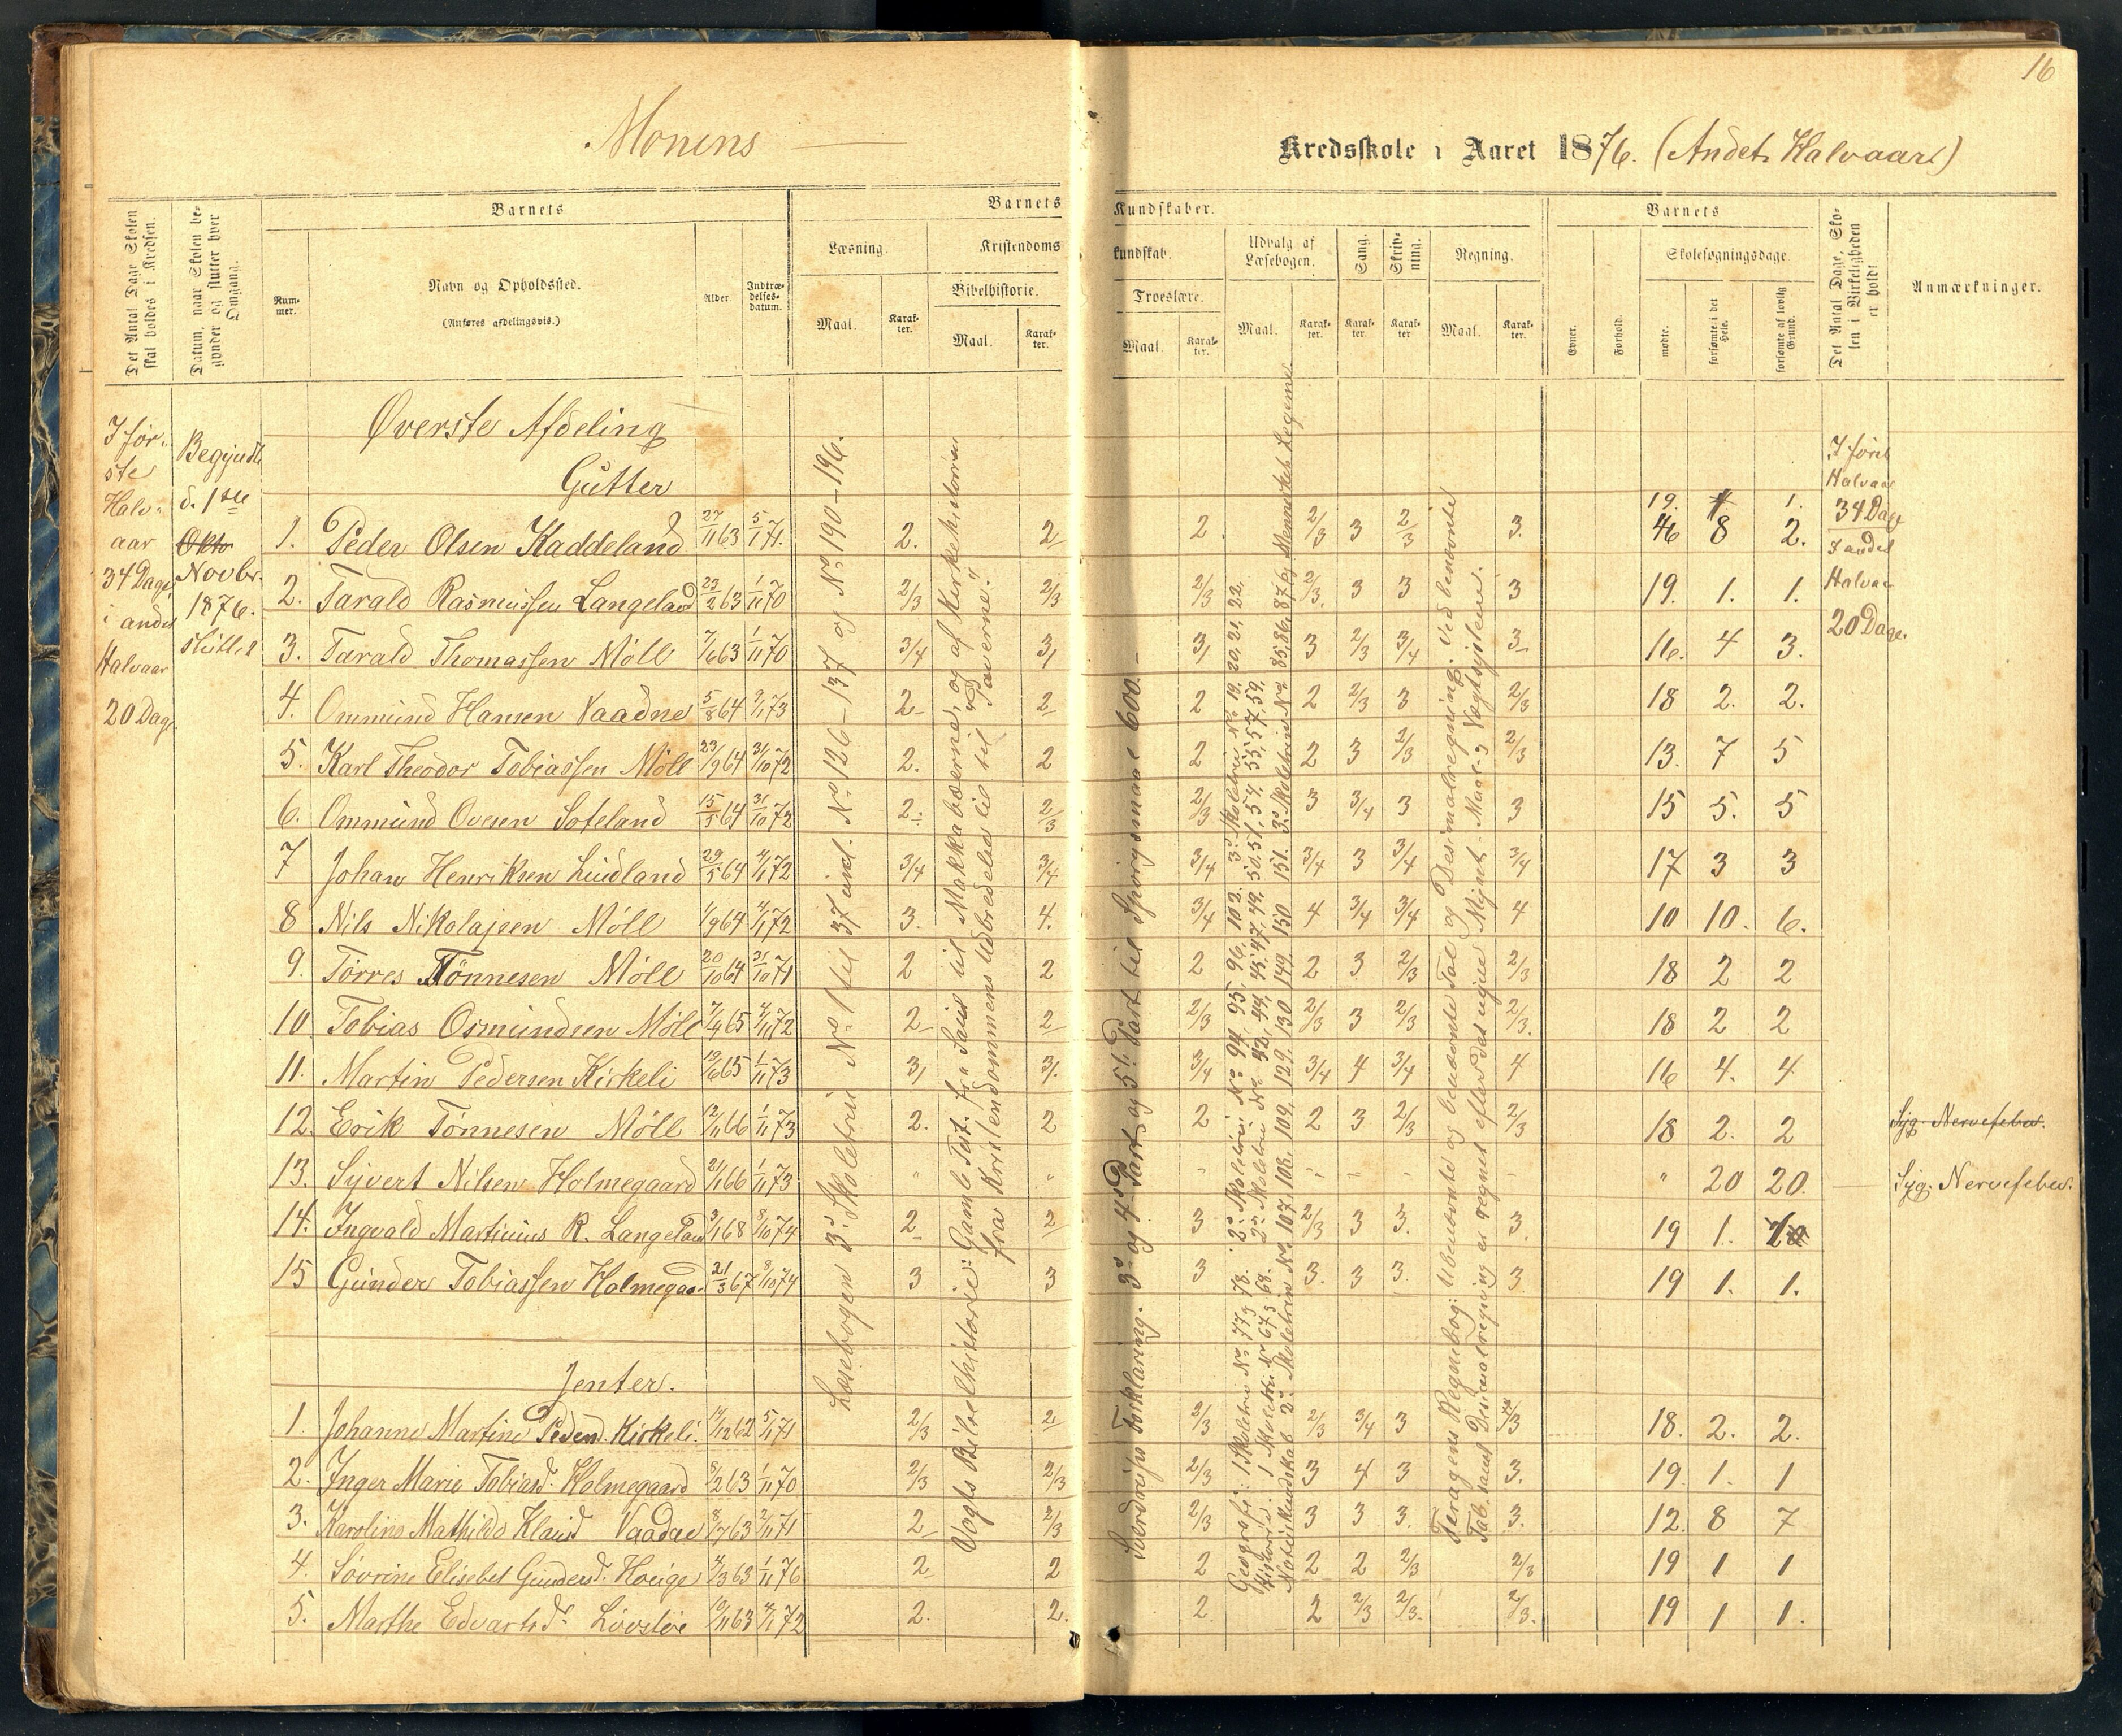 16
Monens
Kredsskole i Aaret 1876. (Andet Halvaar)
Det Antal Dage Skolen skal holdes i Kredsen.
Datum, naar Skolen begynder og slutter hver Omgang.
Barnets
Nummer.
Navn og Opholdssted.
(Anføres afdelingsvis.)
Alder
Indtrædelsesdatum.
Barnets
Kundskaber.
Læsning.
Maal.
Karakter.
Kristendoms
kundskab.
Bibelhistorie.
Maal.
Karakter.
Troeslære.
Maal.
Karakter.
Udvalg af Læsebogen.
Maal.
Karakter.
Sang.
Karakter.
Skrivning.
Karakter
Regning.
Maal.
Karakter.
Barnets
Evner.
Forhold.
Skolesøgningsdage
mødte.
forsømte i det Hele.
forsømte af lovlig Grund.
Det Antal Dage, Skolen i Virkeligheden er holdt
Anmærkninger.
I første Halvaar 34 Dage i andet Halvaar 20 Dage
Begyndt d. 1ste Okto Novbr. 1876. sluttet
Øverste Afdeling
Gutter
19. 1 1.
1. Peder Olsen Kaddeland 27/11 63 5/1 71. 2. 2 2. 2/3 3 2/3 3. 46 8 2.
2. Tarald Rasmussen Langeland 23/2 63 1/11 70 2/3 2/3 2/3 2/3. 3 3 3 19. 1. 1.
3. Tarald Thomassen Möll 7/6 63 1/11 70 3/4 3 3 3 2/3 3/4 3 16. 4 3.
4. Ommund Hansen Vaadne 5/8 64 2/1 73 2 2 2 2 2/3 3 2/3 18 2. 2.
5. Karl Theodor Tobiassen Möll 23/9 64 31/10 72 2. 2 2 2 3 2/3 2/3 13. 7 5
6. Ommund Ovesen Soteland 15/5 64 31/10 72 2. 2/3 2/3 3 3/4 3 3 15 5. 5
7 Johan Henriksen Lindland 29/5 64 4/1 72 3/4 3/4 3/4 3/4 3 3/4 3/4 17 3 3
8 Nils Nikolajsen Möll 1/9 64 4/1 72 3. 4. 3/4 4 3/4 3/4 4 10 10. 6.
9. Törres Tönnesen Möll 20/10 64 31/10 71 2 2 2 2 3 2/3 2/3 18 2 2
10. Tobias Osmundsen Möll 7/4 65 4/11 72 2 2 2/3 2/3 3 2/3 2/3. 18 2 2
11. Martin Pedersen Kirkeli 19/6 65 1/11 73 3 3. 3/4 3/4 4 3/4 4 16 4. 4
12. Erik Tönnesen Möll 12/11 66 1/11 73 2. 2 2 2 3 2/3 2/3 18 2. 2 Syg. Nervefeber.
13. Syvert Nilsen Holmegaard 21/1 66 1/11 73 " " " 20 20. Syg. Nervefeber.
14. Ingvald Martinius R. Langeland 3/1 68 8/10 74 2 2 3 2/3 3 3. 3. 19 1.
15 Gunder Tobiassen Holmegaa 21/3 67 8/10 74 3 3 3 3. 3 3. 3 19 1. 1.
Jenter.
1. Johanne Martine Pedersd. Kirkeli. 14/12 62 5/1 71 2/3 2 2/3 2/3 3/4 3 18. 2. 2.
2. Inger Marie Tobiasd. Holmegaard 8/2 63 1/11 70 2/3 2/3 2/3 3 4 3 3. 19. 1. 1
3. Karoline Mathilde Klausd Vaadne 8/7 63 2/11 71 2 2/3 2/3 3 3 3. 3. 12. 8 7
4. Sövrine Elisebet Gundersd. Høeige 4/3 63 1/11 76 2 2 2 2 2 2/3 2/3 19 1 1
5. Marthe Edvartsd. Lövslöe 19/11 63 4/1 72 2. 2. 2. 2 2/3 2/3. 2/3. 19 1 1.
Læsebogen 3d. Skoletrin No 1 til 37 incl. No 126-137 og No 190-196.
Vogts Bibelhistorie: Gamle Test. fra Saul til Makkabæerne, og af Kirkehistorien
fra Kristendommens Udbredelse til Paverne.
Sverdrups Forklaring. 3d. og 4d. Part og 5t. Part til Spörgsmaal 600.
Geografi: 1 Skoletrin No 77 og 78. 2d. Skoletrin No 94, 95, 96, 102. 3d. Skoletrin No 19, 20, 21, 22.
Historie. 1 Skoletrin No 67 og 68. 2d. Skoletrin No 42, 44, 45, 47, 49, 50, 51, 54, 55, 57, 59,
Naturkundskab 2d. Skoletrin No 107, 108, 109, 129, 130 149, 150 151. 3d. Skoletrin No 85, 86, 87 og Mennesket Legeme
Feragens Regnebog: Ubenævnte og benævnte Tal og Desimalregning. ved benævnte
Tal samt Desimalregning er regnet efter det nye Mynt- Maal- og Vægtsystem.
I første Halvaar 34 Dage
I andet Halvaar 20 Dage.